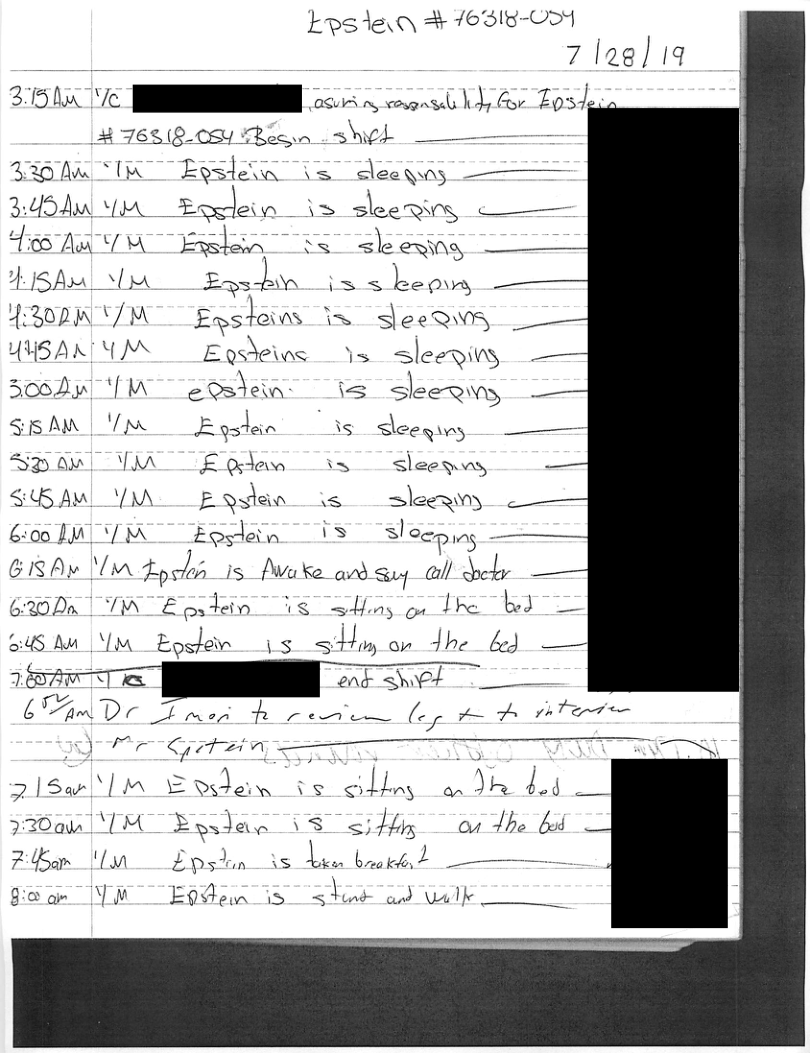 Epstein # 76318-054
7/28/19
3:15AM I/C , asuring responsability for Epstein
# 76318-054 Begin shift
3:30 AM I/M Epstein is sleeping
3:45AM I/M Epstein is sleeping
4:00 AM I/M Epstein is sleeping
4:15AM I/M Epstein is sleeping
4:30AM I/M Epsteins is sleeping
4:45AM I/M Epsteins is sleeping
5:00AM I/M epstein is sleeping
5:15 AM I/M Epstein is sleeping
5:30 AM I/M Epstein is sleeping
5:45 AM I/M Epstein is sleeping
6:00 AM I/M Epstein is sleeping
6:15 AM I/M Epstein is Awake and say call doctor
6:30AM I/M Epstein is sitting on the bed
6:45 AM I/M Epstein is sitting on the bed
7:00AM I/C end shift
6 AM Dr to review log + to interview
Mr Epstein
7:15am I/M Epstein is sitting on the bed
7:30am I/M Epstein is sitting on the bed
7:45am I/M Epstein is taken breakfast
8:00 am I/M Epstein is stand and walk